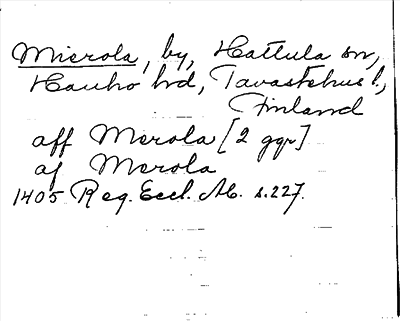 Mierola, by, Hattula sn,
Hauho hd, Tavastehus l.,
Finland
aff Merola [2 ggr]
af Merola
1405 Reg. Eccl. Ab. s. 227.